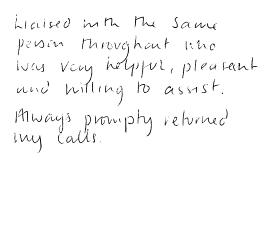 Liaised with the same
person throughout who
was very helpful, pleasant
and willing to assist.
Always promply returned
my calls.